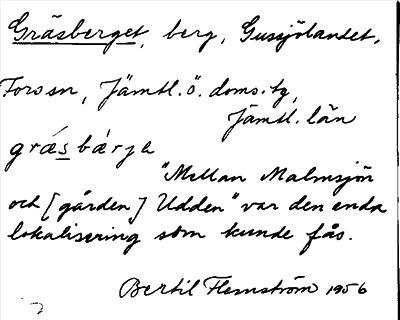 Gräsberget, berg, Gussjölandet,
Fors sn, Jämtl. ö. doms. tg,
Jämtl. län
grá̱sbǽrjə
"Mellan Malmsjön
och [gården] Udden" var den enda
lokalisering som kunde fås.
Bertil Flemström 1956